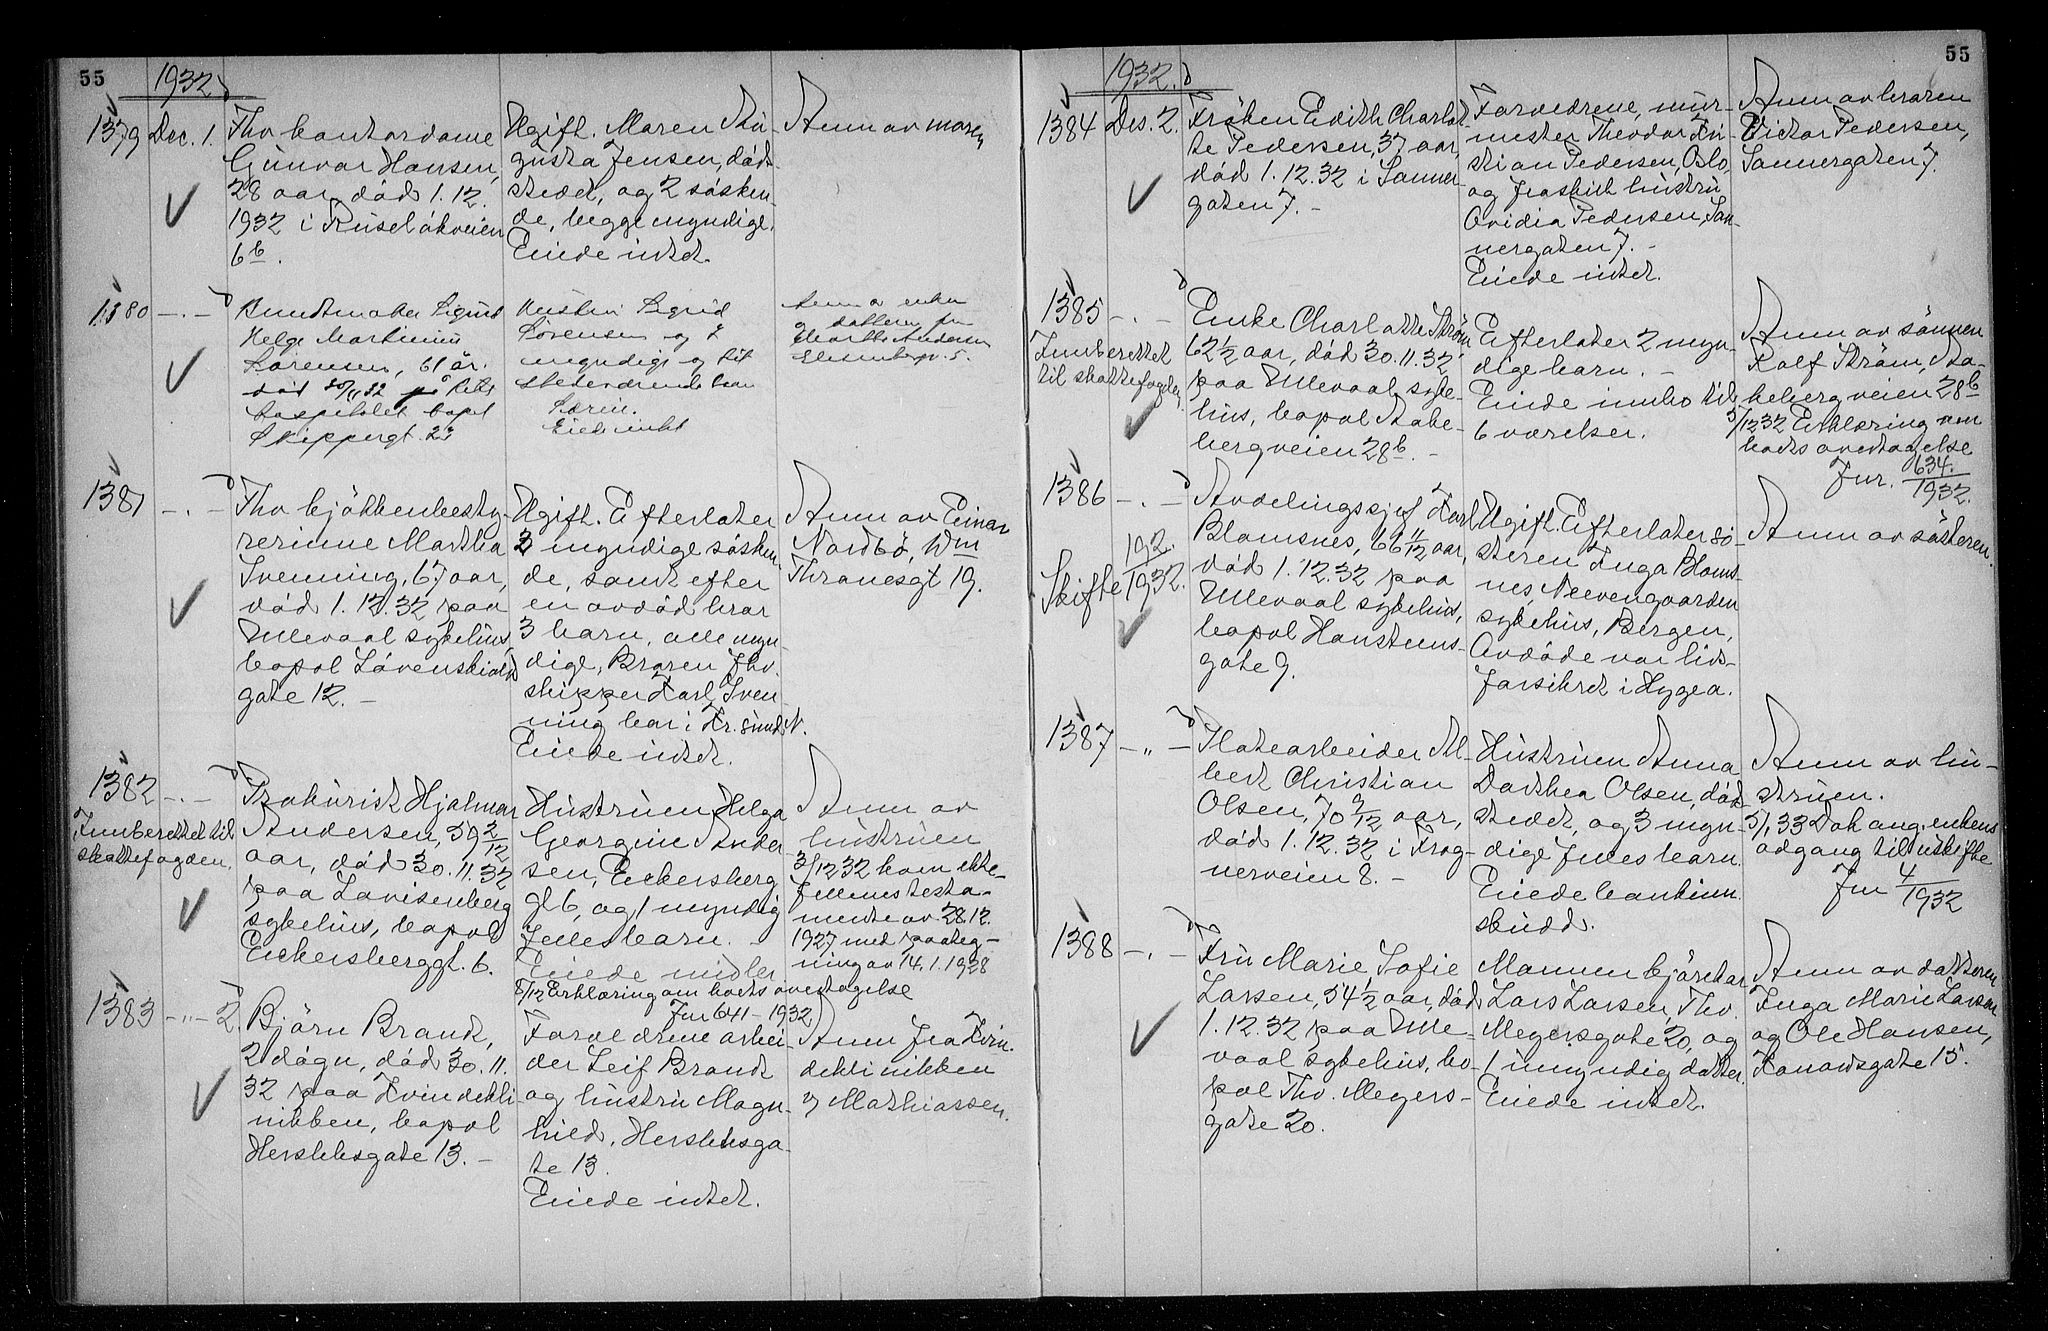 55
1932
1379 Dec. 1.
Fhv kontordame
Gunvor Hansen,
28 aar, död 1.12.
1932 i Ruselökveien
6b.
Ugift. Moren Au-
gusta Jensen, död-
stedet, og 2 sösken-
de, begge myndige.
Eiede intet.
Anm av moren
1380 -.-
Buntmaker Sigurd
Helge Martinius
Sørensen, 61 år.
død 30/11 32 på Rik
hospitalet bopel
Skippergt. 23
Hustru Sigrid
Sørensen og
myndige og
stedværende barn
Eide intet
Anm av enken
datteren fru
Andersen
1381 -.-
Fhv kjökkenbesty-
rerinne Martha
Svenning, 67 aar,
död 1.12.32 paa
Ullevaal sykehus,
bopel Lövenskiolds
gate 12. -
Ugift. Efterlater
3 myndige sösken-
de, samt efter
en avdöd bror
3 barn, alle myn-
dige, Broren fhv.
skipper Karl Sven-
ning bor i Kr.sund N.
Eiede intet.
Anm av Einar
Nordbö, Wm
Thranesgt 19.
1382 -.-
Innberettet til
skattefogden.
Prokurist Hjalmar
Andersen, 59 2/12
aar, död 30.11.32
paa Lovisenberg
sykehus, bopel
Eckersberggt. 6.
Hustruen Helga
Georgine Ander-
sen, Eckersberg
gt 6, og 1 myndig
felles barn. -
Eiede midler
Anm av
hustruen
3/12 32 kom ekte-
fellenes testa-
mente av 28.12.
1927 med paateg-
ning av 14.1.1928
8/12 Erklæring om boets overtagelse
Jnr 641 - 1932
1383 -"- 2.
Björn Brandt,
2 dögn, död 30.11.
32 paa Kvindekli-
nikken, bopel
Herslebsgate 13. -
Foreldrene arbei-
der Leif Brandt
og hustru Magn-
hild, Herslebsga-
te 13.
Eiede intet.
Anm fra Kvin-
deklinikken
v/ Mathiassen.
55
1932.
1384 Des. 2.
Fröken Edith Charlot-
te Pedersen, 37 aar,
död 1.12.32 i Sanner-
gaten 7. -
Foreldrene, mur-
mester Theodor Kri-
stian Pedersen, Oslo,
og fraskilt hustru
Ovidia Pedersen, San-
nergaten 7. -
Eiede intet.
Anm av broren
Victor Pedersen,
Sannergaten 7.
1385 -.-
Innberettet
til skattefogden.
Enke Charlotte Ström
62 1/2 aar, död 30.11.32
paa Ullevaal syke-
hus, bopel Stake-
bergveien 28b. -
Efterlater 2 myn-
dige barn. -
Eiede innbo til
6 værelser.
Anm av sönnen
Rolf Ström, Sta-
kebergveien 28b
5/12 32 Erklæring om
boets overtagelse
Jnr. 634./1932.
1386 -.-
Skifte 192./1932.
Avdelingssjef Karl
Blomsnes, 66 11/12 aar,
död 1.12.32 paa
Ullevaal sykehus,
bopel Hansteens-
gate 9.
Ugift. Efterlater sö-
steren Inga Bloms-
nes, Neevengaarden
sykehus, Bergen,
Avdöde var livs-
forsikret i Hygea.
Anm av sösteren.
1387 -"-
Platearbeider Al-
bert Christian
Olsen, 70 9/12 aar,
död 1.12.32 i Frog-
nerveien 8. -
Hustruen Anna
Dorthea Olsen, död-
stedet, og 3 myn-
dige felles barn.
Eiede bankinn-
skudd.
Anm av hu-
struen.
5/1 33 Dok ang. enkens
adgang til uskifte
Jnr 4/1932
1388 -.-
Fru Marie Sofie
Larsen, 54 1/2 aar, död
1.12.32 paa Ulle-
vaal sykehus, bo-
pel Thv. Meyers-
gate 20.
Mannen kjörekar
Lars Larsen, Thv.
Meyersgate 20, og
1 umyndig datter.
Eiede intet.
Anm av datteren
Inga Marie Larsen
og Ole Hansen,
Konowsgate 15.